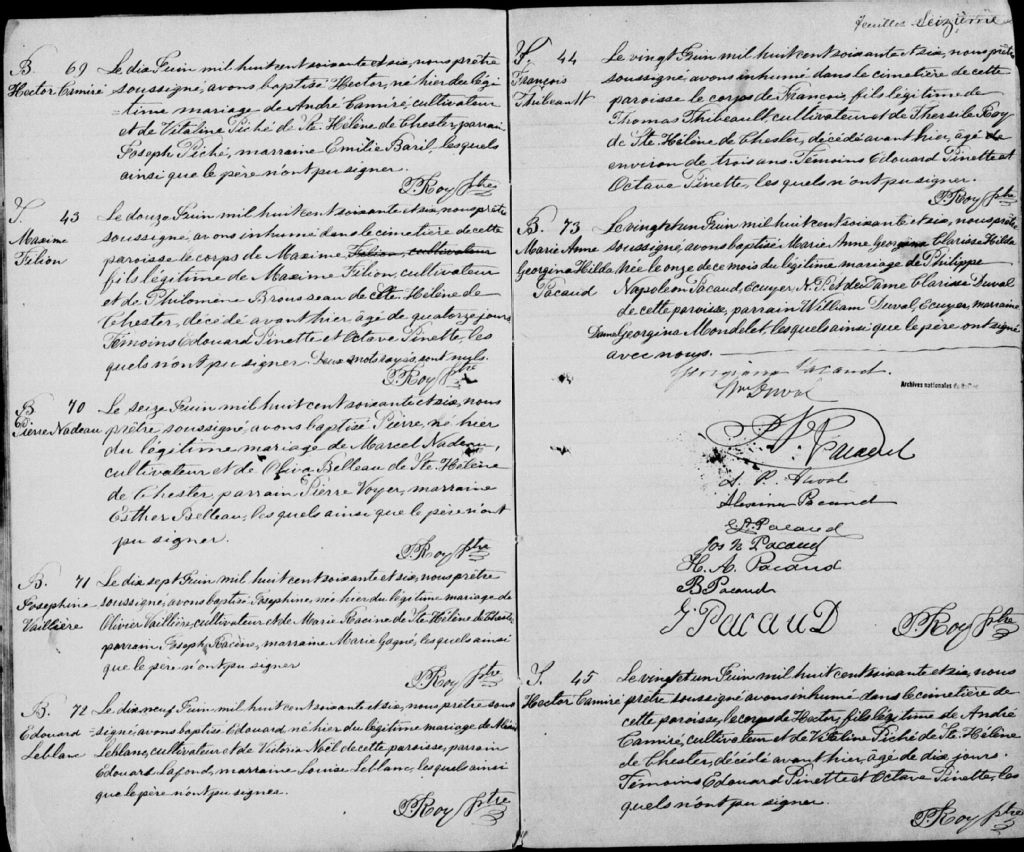 B. 69
Hector Camiré
Le dix Juin mil huit cent soixante et six, nous prêtre
soussigné, avons baptisé Hector, né hier du légi-
time mariage de André Camiré, cultivateur
et de Vitaline Piché de Ste Hélène de Chester, parrain
Joseph Piché, marraine Emilie Baril, les quels
ainsi que le père n'ont pu signer.
P. Roy Ptre
S. 43
Maxime
Filion
Le douze Juin mil huit cent soixante et six, nous prêtre
soussigné, avons inhumé dans le cimetière de cette
paroisse le corps de Maxime Filion, cultivateur
fils légitime de Maxime Filion, cultivateur
et de Philomène Brousseau de Ste Hélène de
Chester, décédé avant hier, âgé de quatorze jours
Témoins Edouard Pinette et Octave Pinette, les
quels n'ont pu signer. Deux mots rayés, sont nuls.
P. Roy Ptre
B. 70
Pierre Nadeau
Le seize Juin mil huit cent soixante et six, nous
prêtre soussigné, avons baptisé Pierre, né hier
du légitime mariage de Marcel Nadeau,
cultivateur et de Oliva Belleau de Ste Hélène
de Chester, parrain Pierre Voyer, marraine
Esther Belleau, les quels ainsi que le père n'ont
pu signer.
P. Roy Ptre
B. 71
Josephine
Vaillière
Le dix sept Juin mil huit cent soixante et six, nous prêtre
soussigné, avons baptisé Josephine, née hier du légitime mariage de
Olivier Vaillière, cultivateur et de Marie Racine de Ste Hélène de Chester,
parrain Joseph Racine, marraine Marie Gagné, les quels ainsi
que le père n'ont pu signer
P. Roy Ptre
B. 72
Edouard
Leblanc
Le dix neuf Juin mil huit cent soixante et six, nous prêtre sous
signé, avons baptisé Edouard né hier du légitime mariage de
Leblanc, cultivateur et de Victoria Noël de cette paroisse, parrain
Edouard Lafond, marraine Louise Leblanc, les quels ainsi
que le père n'ont pu signer.
P. Roy Ptre
feuillet Seizième
S. 44
François
Thibeault
Le vingt Juin mil huit cent soixante et six, nous prêtre
soussigné, avons inhumé dans le cimetière de cette
paroisse le corps de François, fils légitime de
Thomas Thibeault, cultivateur et de Thersile Roy
de Ste Hélène de Chester, décédé avant hier, âgé de
environ de trois ans. Témoins Edouard Pinette et
Octave Pinette, les quels n'ont pu signer.
P. Roy Ptre
B. 73
Marie Anne
Georgina Hilda
Pacaud
Le vingt et un Juin mil huit cent soixante et six, nous prêtre
soussigné avons baptisé Marie Anne Georgina Clarisse Hilda
née le onze de ce mois du légitime mariage de Philippe
Napoleon Pacaud, Ecuyer, N.P. et de Dame Clarisse Duval
de cette paroisse, parrain William Duval, Ecuyer, marraine
Dame Georgina Mondelet, les quels ainsi que le père ont signé
avec nous.
Georgiana Pacaud.
Wm Duval
Archives nationales du Québec
P. N. Pacaud
L. P. Duval
Pacaud
Pacaud
Jos N Pacaud
H. A. Pacaud
B Pacaud
G Pacaud
P. Roy Ptre
S. 45
Hector Camiré
Le vingt et un Juin mil huit cent soixante et six, nous
prêtre soussigné avons inhumé dans le cimetière de
cette paroisse, le corps de Hector, fils légitime de André
Camiré, cultivateur et de Vitaline Piché de Ste Hélène
de Chester, décédé avant hier, âgé de dix jours.
Témoins Edouard Pinette et Octave Pinette, les
quels n'ont pu signer.
P. Roy Ptre